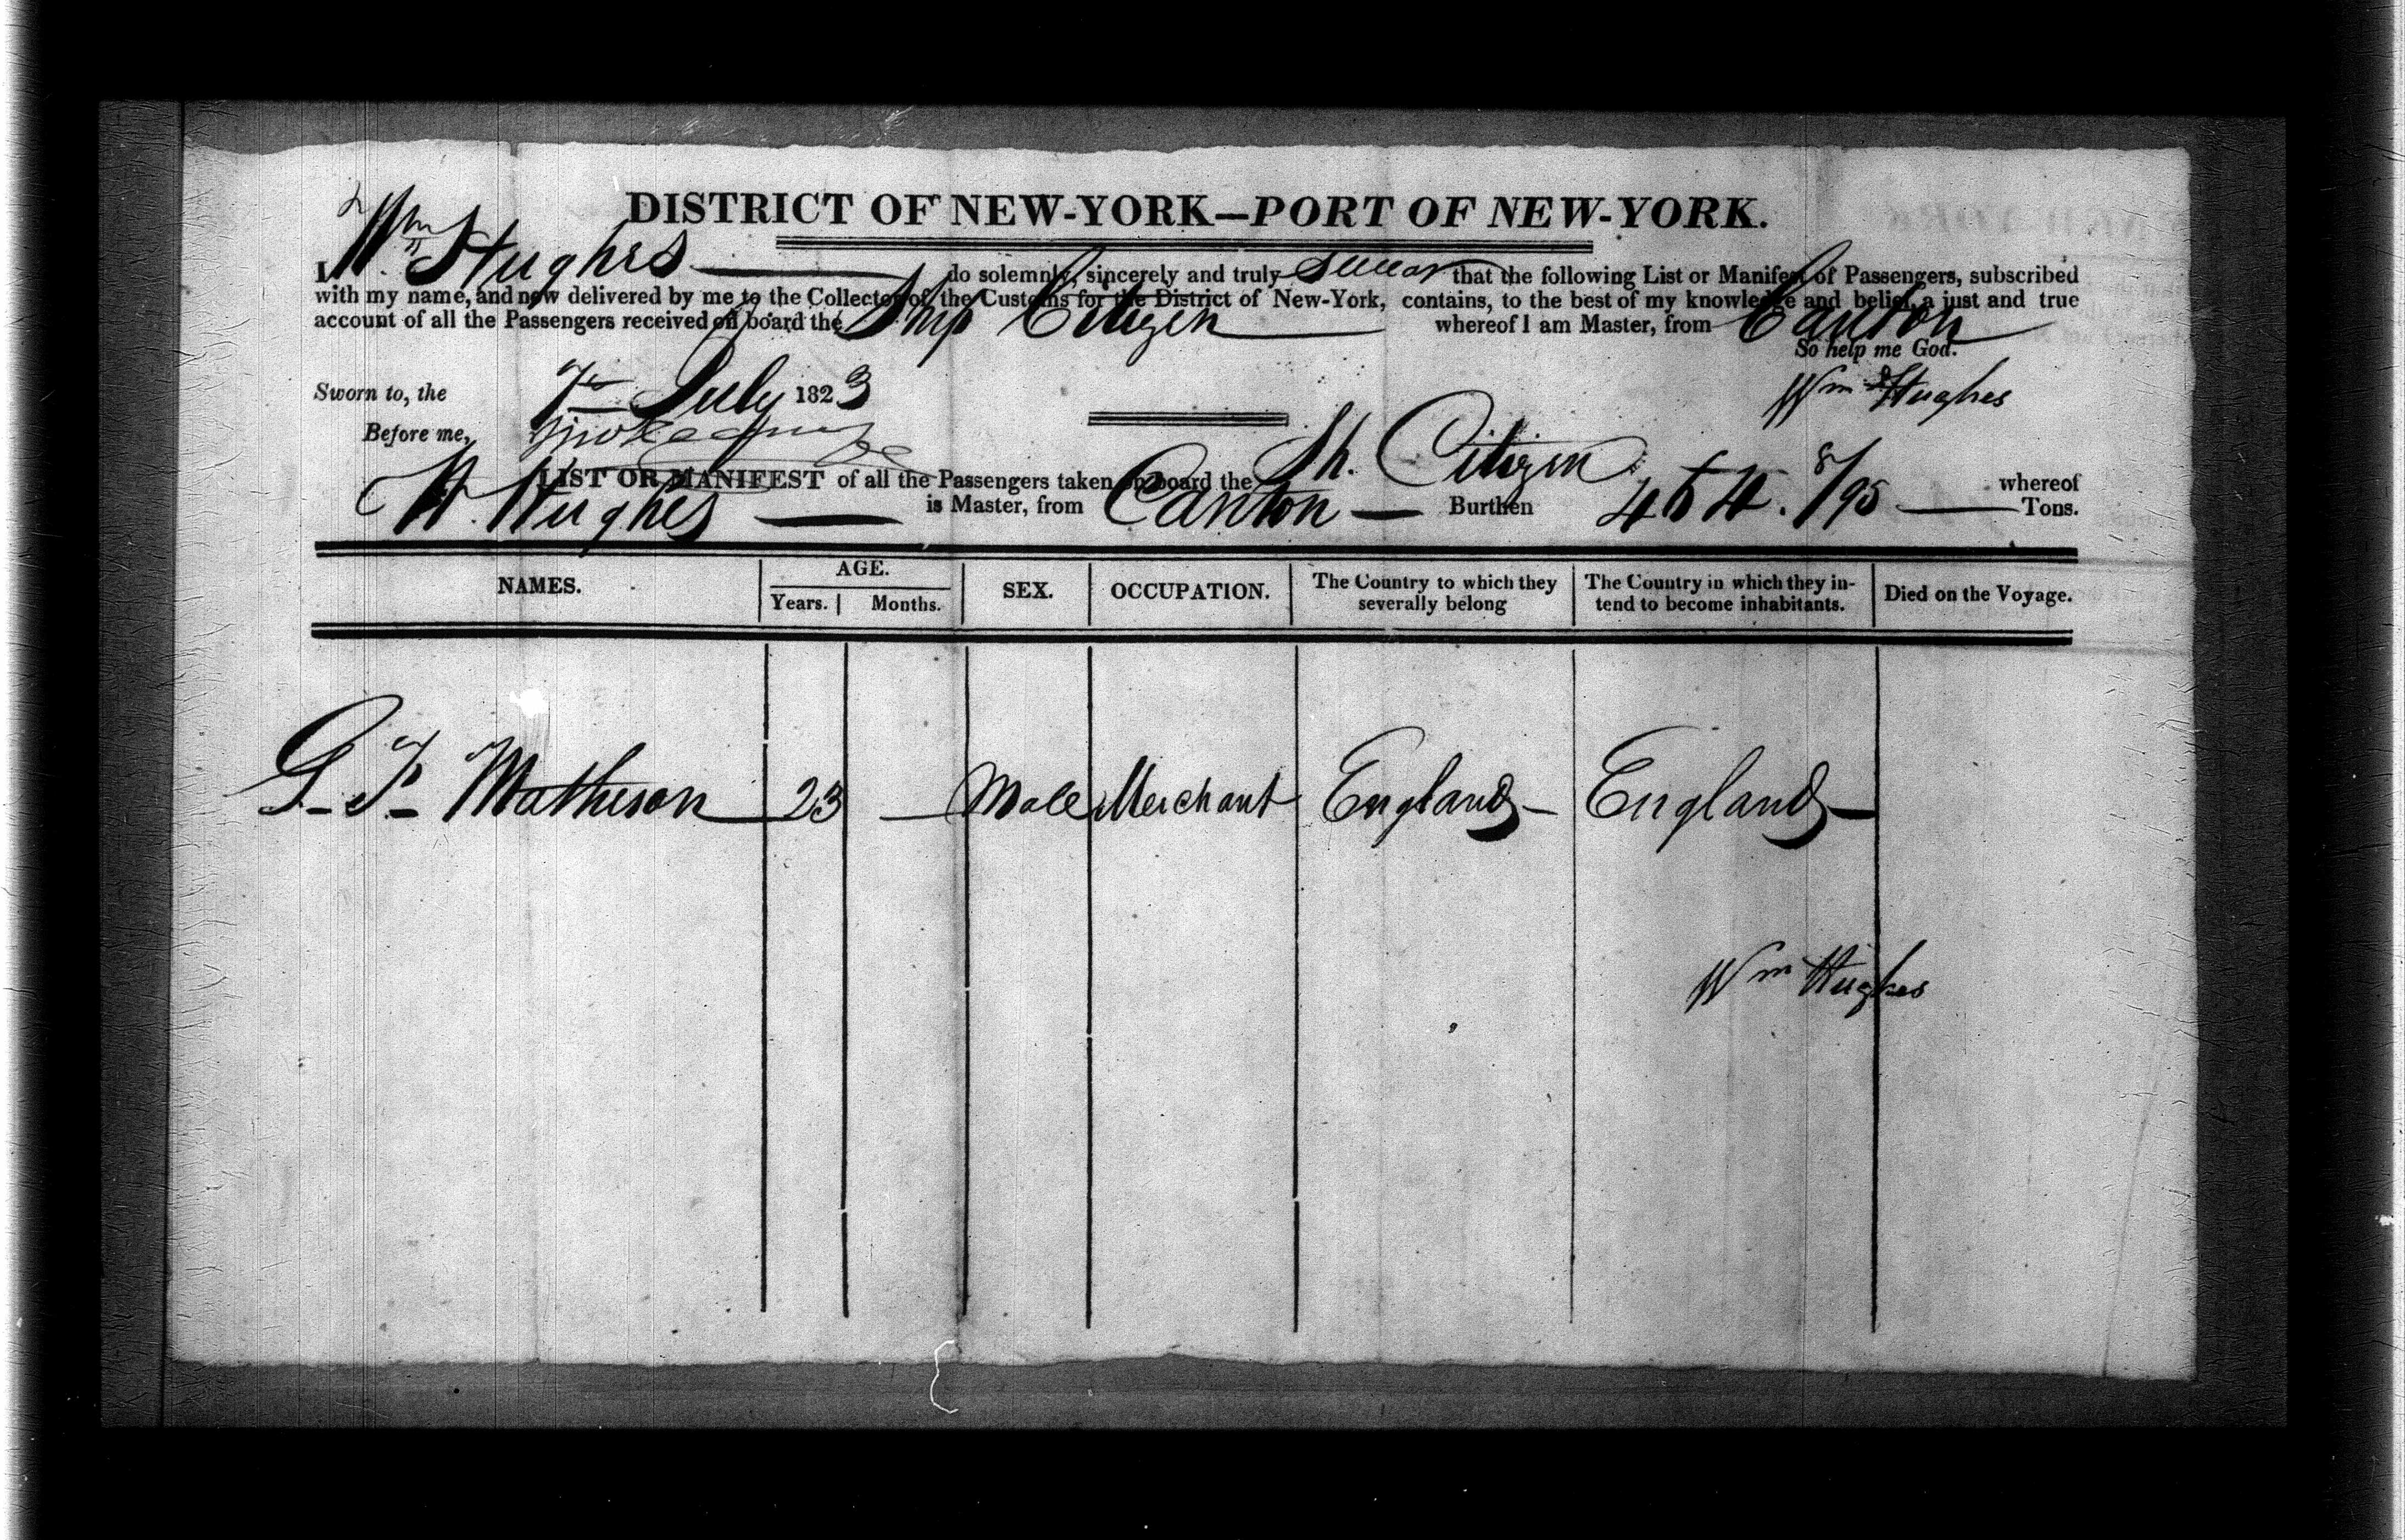 DISTRICT OF NEW-YORK—PORT OF NEW-YORK.
I Wm Hughes do solemnly, sincerely and truly Swear that the following List or Manifest of Passengers, subscribed
with my name, and now delivered by me to the Collector of the Customs for the District of New-York, contains, to the best of my knowledge and belief, a just and true
account of all the Passengers received on board the Ship Citizen whereof I am Master, from Canton
So help me God.
Sworn to, the 7 July 1823
Wm Hughes
Before me,
LIST OR MANIFEST of all the Passengers taken on board the Sh. Citizen whereof
W. Hughes is Master, from Canton Burthen 464. 8/95 Tons.
NAMES. AGE. SEX. OCCUPATION. The Country to which they severally belong The Country in which they in-tend to become inhabitants. Died on the Voyage.
Years. Months.
G. F. Mathison 23 — Male Merchant England — England —
Wm Hughes